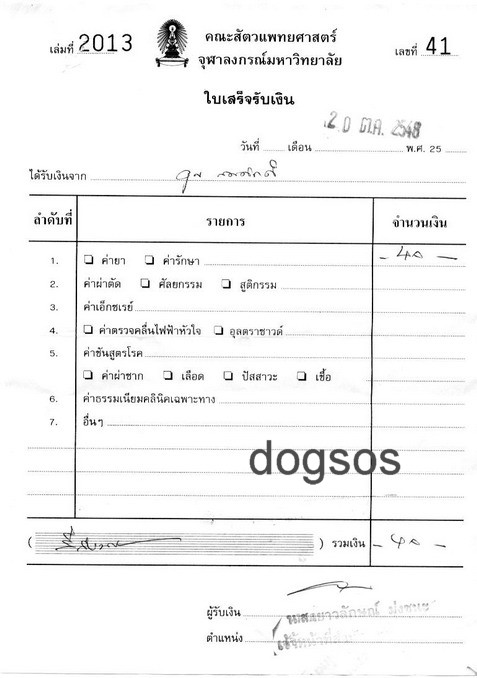 เล่มที่ 2013
คณะสัตวแพทยศาสตร์
จุฬาลงกรณ์มหาวิทยาลัย
เลขที่ 41
ใบเสร็จรับเงิน
20 ต.ค. 2548
วันที่ เดือน พ.ศ. 25
ได้รับเงินจาก คุณ
ลำดับที่ รายการ จำนวนเงิน
1. ค่ายา ค่ารักษา - 40 -
2. ค่าผ่าตัด ศัลยกรรม สูติกรรม
3. ค่าเอ็กซเรย์
4. ค่าตรวจคลื่นไฟฟ้าหัวใจ อุลตราซาวด์
5. ค่าชันสูตรโรค
ค่าผ่าซาก เลือด ปัสสาวะ เชื้อ
6. ค่าธรรมเนียมคลินิคเฉพาะทาง
7. อื่นๆ
dogsos
( สี่สิบบาท ) รวมเงิน - 40 -
ผู้รับเงิน
ตำแหน่ง